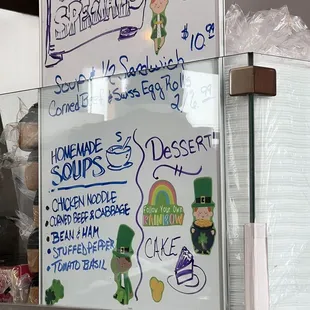 SPECIALS
$10.
Soup & 1/2 Sandwich
Corned Beef & Swiss Egg Rolls
HOMEMADE
SOUPS
• CHICKEN NOODLE
• CORNED BEEF & CABBAGE
• BEAN & HAM
• STUFFED PEPPER
• TOMATO BASIL
DESSERT
Follow Your Own
RAINBOW
CAKE